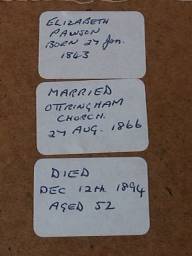 ELIZABETH
PAWSON
BORN 27 Jan.
1843
MARRIED
OTTRINGHAM
CHURCH.
27 AUG. 1866
DIED
DEC 12TH 1894
AGED 52